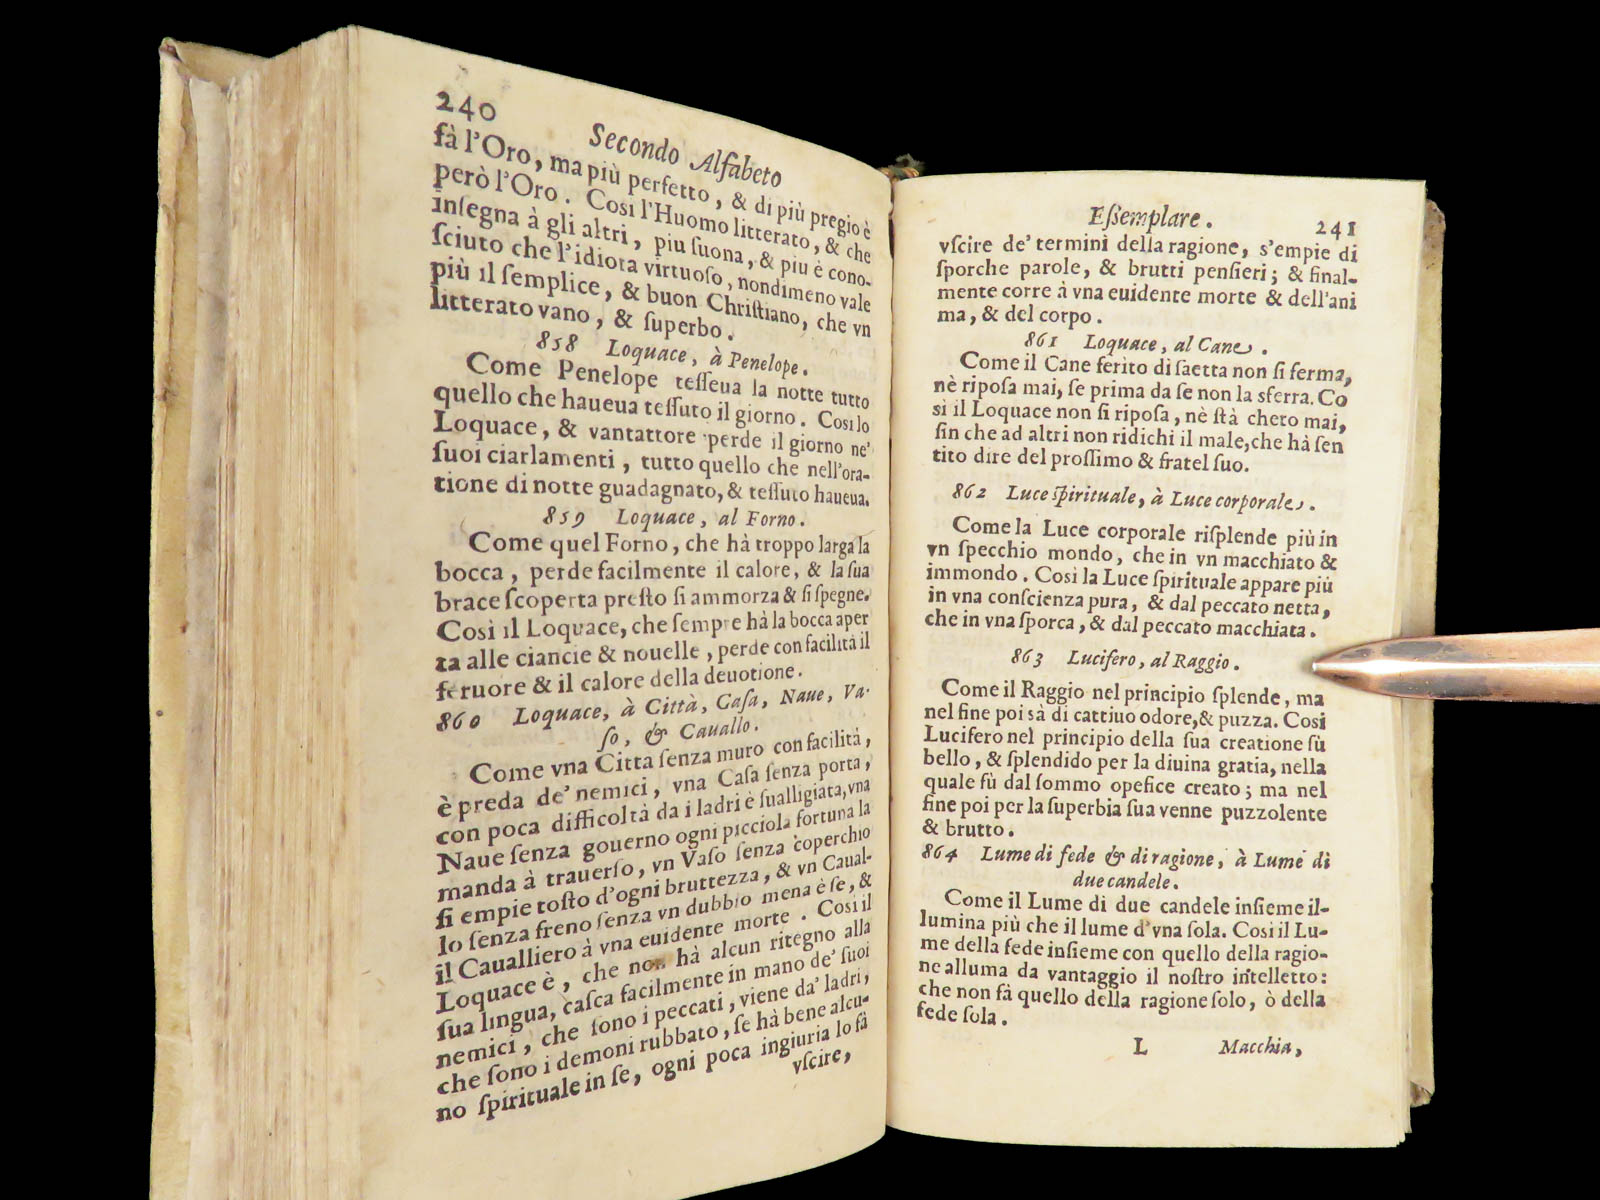 240
Secondo Alfabeto
fà l'Oro, ma più perfetto, & di più pregio è
però l'Oro. Così l'Huomo litterato, & che
inſegna à gli altri, piu ſuona, & piu è cono-
ſciuto che l'idiota virtuoſo, nondimeno vale
più il ſemplice, & buon Chriſtiano, che vn
litterato vano, & ſuperbo.
858 Loquace, à Penelope.
Come Penelope teſſeua la notte tutto
quello che haueua teſſuto il giorno. Così lo
Loquace, & vantattore perde il giorno ne'
ſuoi ciarlamenti, tutto quello che nell'ora-
tione di notte guadagnato, & teſſuto haueua.
859 Loquace, al Forno.
Come quel Forno, che hà troppo larga la
bocca, perde facilmente il calore, & la ſua
brace ſcoperta preſto ſi ammorza & ſi ſpegne.
Così il Loquace, che ſempre hà la bocca aper
ta alle ciancie & nouelle, perde con facilità il
feruore & il calore della deuotione.
860 Loquace, à Città, Caſa, Naue, Va-
ſo, & Cauallo.
Come vna Citta ſenza muro con facilità,
è preda de' nemici, vna Caſa ſenza porta,
con poca difficoltà da i ladri è ſualligiata, vna
Naue ſenza gouerno ogni picciola fortuna la
manda à trauerſo, vn Vaſo ſenza coperchio
ſi empie toſto d'ogni bruttezza, & vn Caual-
lo ſenza freno ſenza vn dubbio mena è ſe, &
il Caualliero à vna euidente morte. Così il
Loquace è, che non hà alcun ritegno alla
ſua lingua, caſca facilmente in mano de' ſuoi
nemici, che ſono i peccati, viene da' ladri,
che ſono i demoni rubbato, ſe hà bene alcu-
no ſpirituale in ſe, ogni poca ingiuria lo fà
vſcire,
Eſſemplare.
241
vſcire de' termini della ragione, s'empie di
ſporche parole, & brutti penſieri; & final-
mente corre à vna euidente morte & dell'ani
ma, & del corpo.
861 Loquace, al Cane.
Come il Cane ferito di ſaetta non ſi ferma,
nè ripoſa mai, ſe prima da ſe non la sferra. Co
sì il Loquace non ſi ripoſa, nè ſtà cheto mai,
ſin che ad altri non ridichi il male, che hà ſen
tito dire del proſſimo & fratel ſuo.
862 Luce ſpirituale, à Luce corporale.
Come la Luce corporale riſplende più in
vn ſpecchio mondo, che in vn macchiato &
immondo. Così la Luce ſpirituale appare più
in vna conſcienza pura, & dal peccato netta,
che in vna ſporca, & dal peccato macchiata.
863 Lucifero, al Raggio.
Come il Raggio nel principio ſplende, ma
nel fine poi sà di cattiuo odore, & puzza. Così
Lucifero nel principio della ſua creatione fù
bello, & ſplendido per la diuina gratia, nella
quale fù dal ſommo opefice creato; ma nel
fine poi per la ſuperbia ſua venne puzzolente
& brutto.
864 Lume di fede & di ragione, à Lume di
due candele.
Come il Lume di due candele inſieme il-
lumina più che il lume d'vna ſola. Così il Lu-
me della fede inſieme con quello della ragio-
ne alluma da vantaggio il noſtro intelletto:
che non fà quello della ragione ſolo, ò della
fede ſola.
L
Macchia,